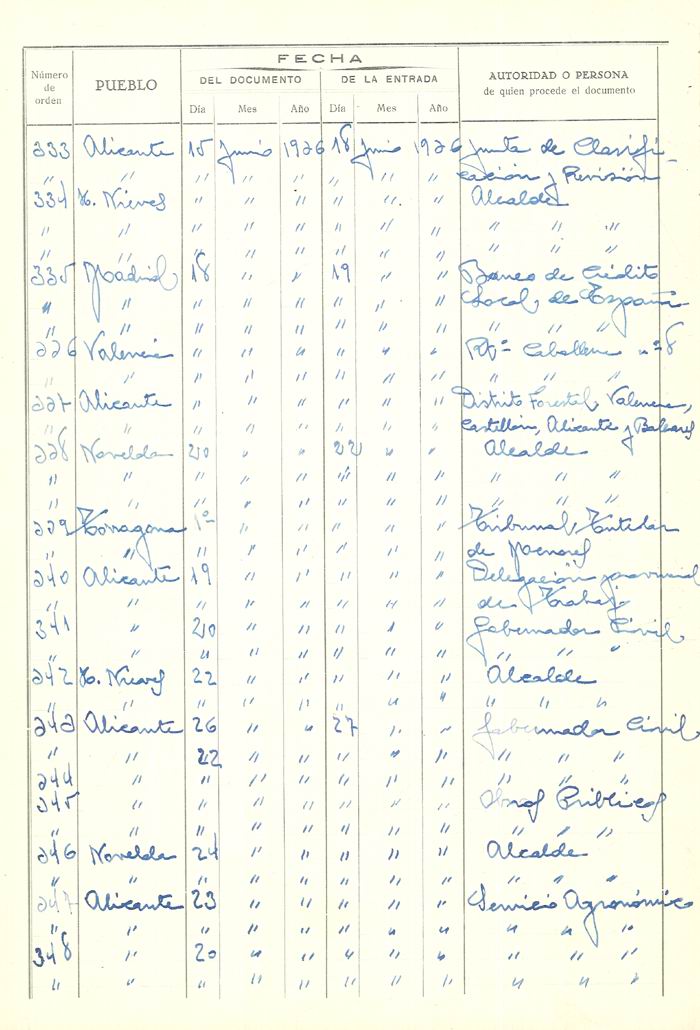 FECHA
Número de orden PUEBLO DEL DOCUMENTO DE LA ENTRADA AUTORIDAD O PERSONA de quien procede el documento
Día Mes Año Día Mes Año
333 Alicante 15 Junio 1926 18 Junio 1926 Junta de Clasifi-
" " " " " " " " cación y Revisión
334 H. Nieves " " " " " " Alcalde
" " " " " " " " " " "
" " " " " " " " " " "
335 Madrid 18 " " 19 " " Banco de Crédito
" " " " " " " " Local, de España
" " " " " " " " " " "
336 Valencia " " " " " " Caballería nº 8
" " " " " " " " " " "
337 Alicante " " " " " " Distrito Forestal, Valencia,
" " " " " " " " Castellón, Alicante y Baleares
338 Novelda 20 " " 22 " " Alcalde
" " " " " " " " " " "
" " " " " " " " " " "
339 Tarragona 1º " " " " " Tribunal, Tutelar
" " " " " " " de Menores
340 Alicante 19 " " " " " Delegación provincial
" " " " " " " " de Trabajo
341 " 20 " " " " " Gobernador Civil
" " " " " " " " " " "
342 H. Nieves 22 " " " " " Alcalde
" " " " " " " " " " "
343 Alicante 26 " " 27 " " Gobernador Civil
" " 22 " " " " " " " "
344 " " " " " " " " " "
345 " " " " " " " Obras Públicas
" " " " " " " " " " "
346 Novelda 24 " " " " " Alcalde
" " " " " " " " " " "
347 Alicante 23 " " " " " Servicio Agronómico
" " " " " " " " " " "
348 " 20 " " " " " " " "
" " " " " " " " " " "